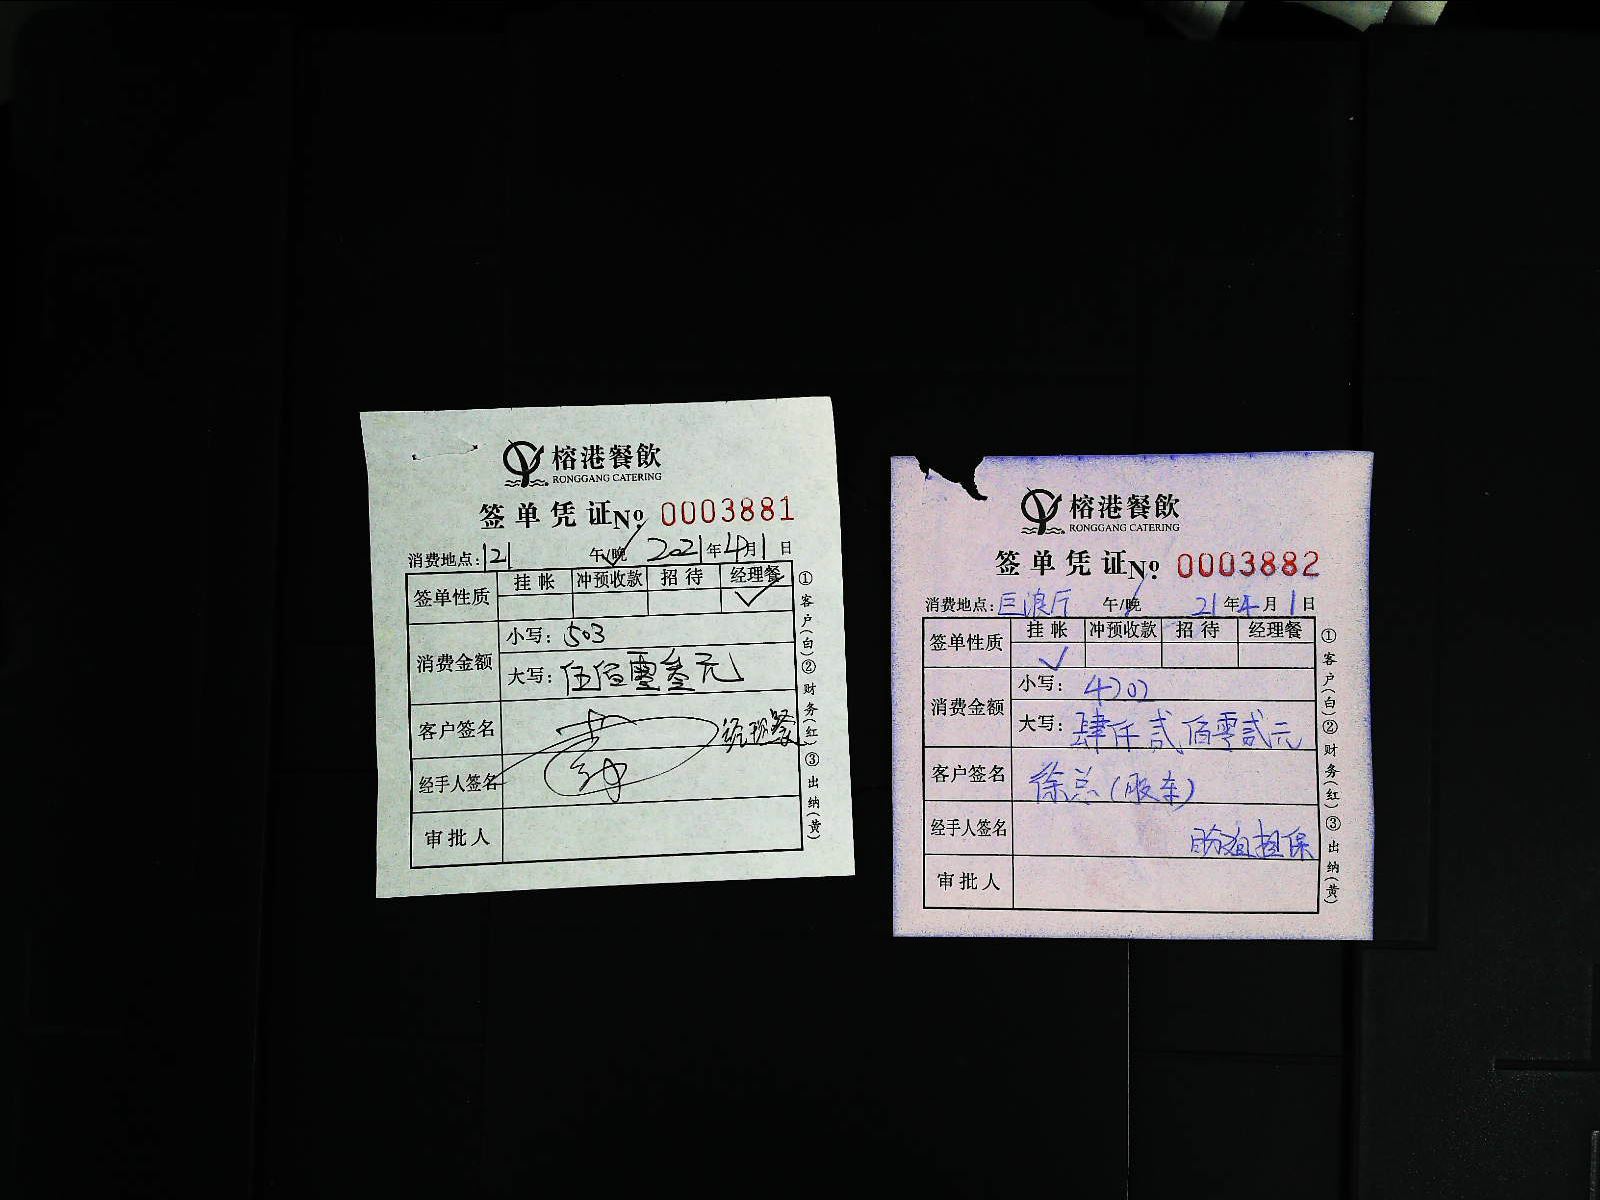 榕港餐飲
RONGGANG CATERING
签单凭证№ 0003881
消费地点: 121 午/晚 2021年4月1日
签单性质 挂帐 冲预收款 招待 经理餐
消费金额 小写: 503
大写: 伍佰零叁元
客户签名 经理餐
经手人签名
审批人
①客户(白)②财务(红)③出纳(黄)
榕港餐飲
RONGGANG CATERING
签单凭证№ 0003882
消费地点: 巨浪厅 午/晚 21年4月1日
签单性质 挂帐 冲预收款 招待 经理餐
消费金额 小写: 4202
大写: 肆仟贰佰零贰元
客户签名 徐总(股东)
经手人签名 担保
审批人
①客户(白)②财务(红)③出纳(黄)